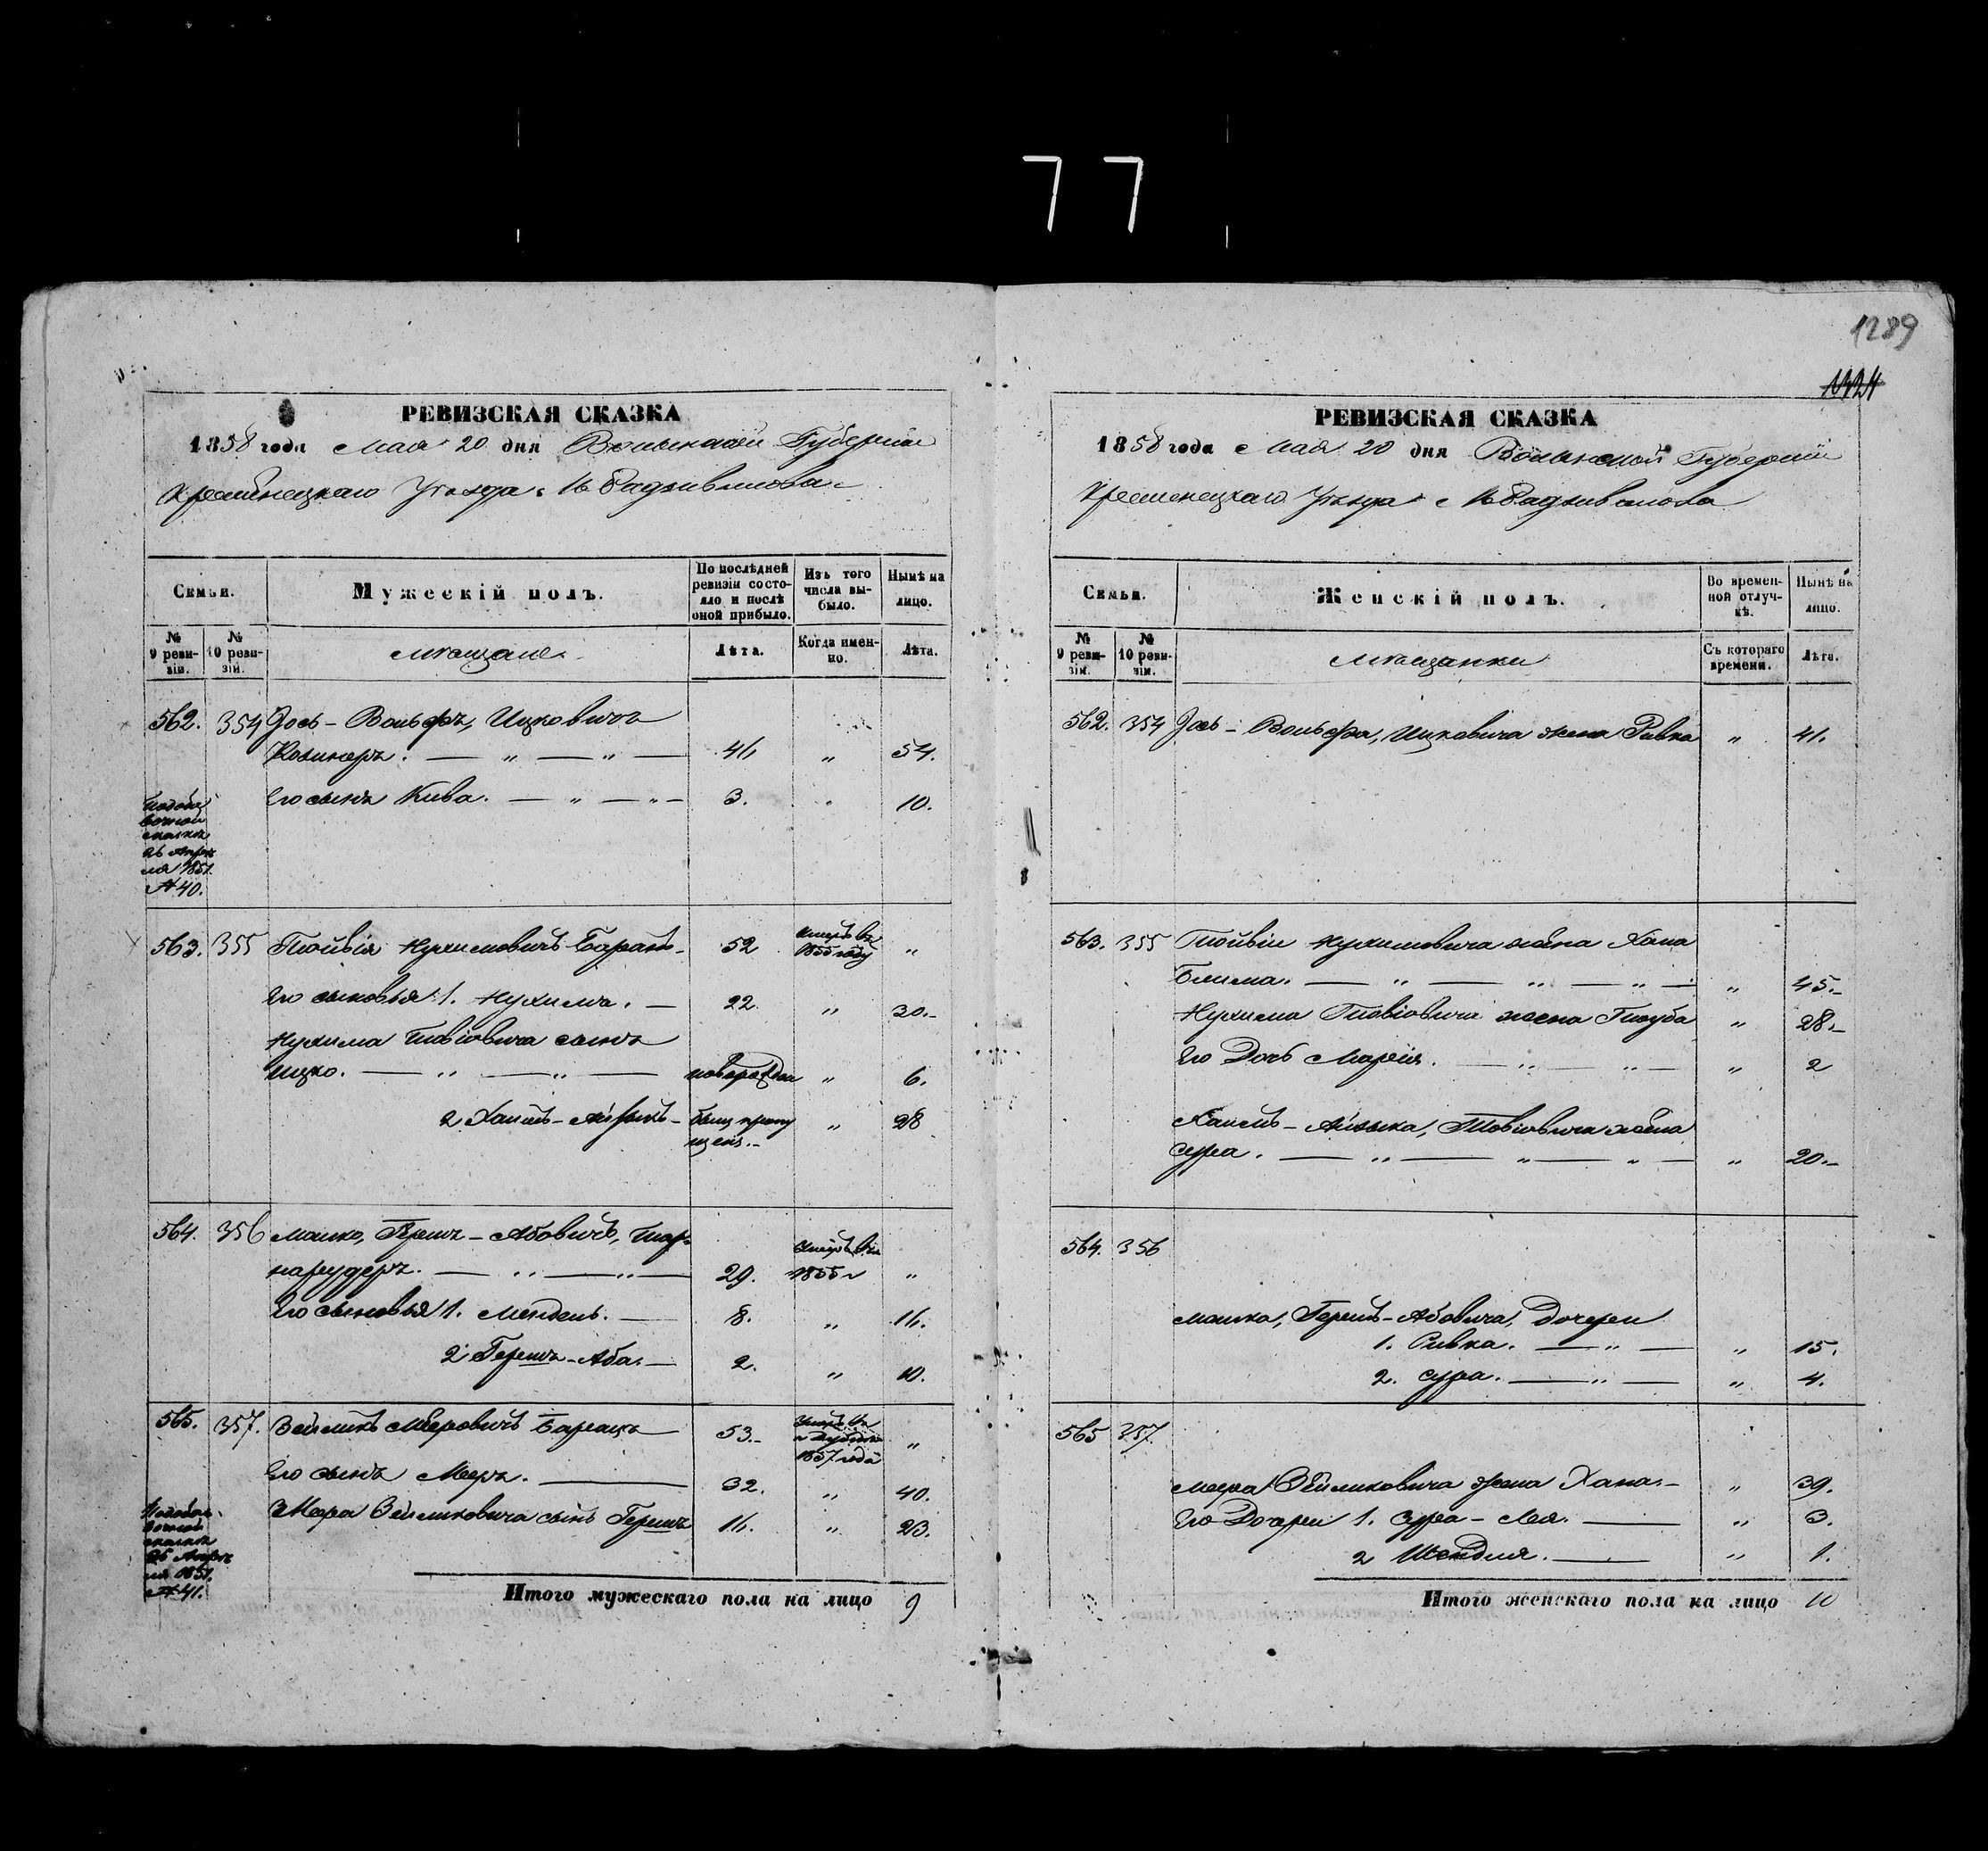 77
1289
1424
РЕВИЗСКАЯ СКАЗКА
1858 года Мая 20 дня Волынской Губернии
Кременецкаго Уезда М Радзивилова
Семьи.
Мужескій полъ.
По послѣдней ревизіи состояло и послѣ оной прибыло.
Изъ того числа выбыло.
Нынѣ на лицо.
№ 9 ревизіи.
№ 10 ревизіи.
Мещане
Лѣта.
Когда именно.
Лѣта.
562. 354 Іось-Вольфъ, Ицковичъ
Козинеръ. — " — " — 46 " 54.
Его сынъ Кива. — " — " — 3. " 10.
26 Апреля 1851 № 40.
563. 355 Тойвія Нухимовичъ 52 умеръ въ 1855 году "
Его сыновья 1. Нухимъ. — 22 " 30.
Нухима Товіовича сынъ
Ицко. — " — " — новорожден " 6.
2 Хаимъ-Айзыкъ - былъ пропущенъ. " 28
564. 356 Мошко, Гершъ-Абовичъ,
— " — " — 29. умеръ въ 1855 г "
Его сыновья 1. Мендель. — 8. " 16.
2. Гершъ-Аба. — 2. " 10.
565. 357. Зейликъ Мееровичъ 53. умеръ въ 1857 года "
Его сынъ Мееръ. — 32. " 40.
Меера Зейликовича сынъ Гершъ 16. " 23.
26 Апреля 1851 № 41.
Итого мужескаго пола на лицо 9
РЕВИЗСКАЯ СКАЗКА
1858 года Мая 20 дня Волынской Губерніи
Кременецкаго Уезда М Радзивилова
Семьи.
Женскій полъ.
Во временной отлучкѣ.
Нынѣ на лицо.
№ 9 ревизіи.
№ 10 ревизіи.
Мещанки
Съ котораго времени.
Лѣта.
562. 354 Іось-Вольфа, Ицковича жена Ривка " 41.
563. 355 Тойвіи Нухимовича жена Хана
Блима. — " — " — " — " 45.
Нухима Товіовича жена Тауба " 28.
Его Дочь Марія. — " — " — " 2
Хаимъ-Айзыка, Товіовича жена
Сура. — " — " — " — " 20.
564. 356
Мошка, Гершъ-Абовича, Дочери
1. Ривка. — " — " 15.
2. Сура. — " — " 4.
565 357
Меера Зейликовича жена Хана. " 39.
Его Дочери 1. Сура-Лея. — " 3.
2 Шендля. — " 1.
Итого женскаго пола на лицо 10